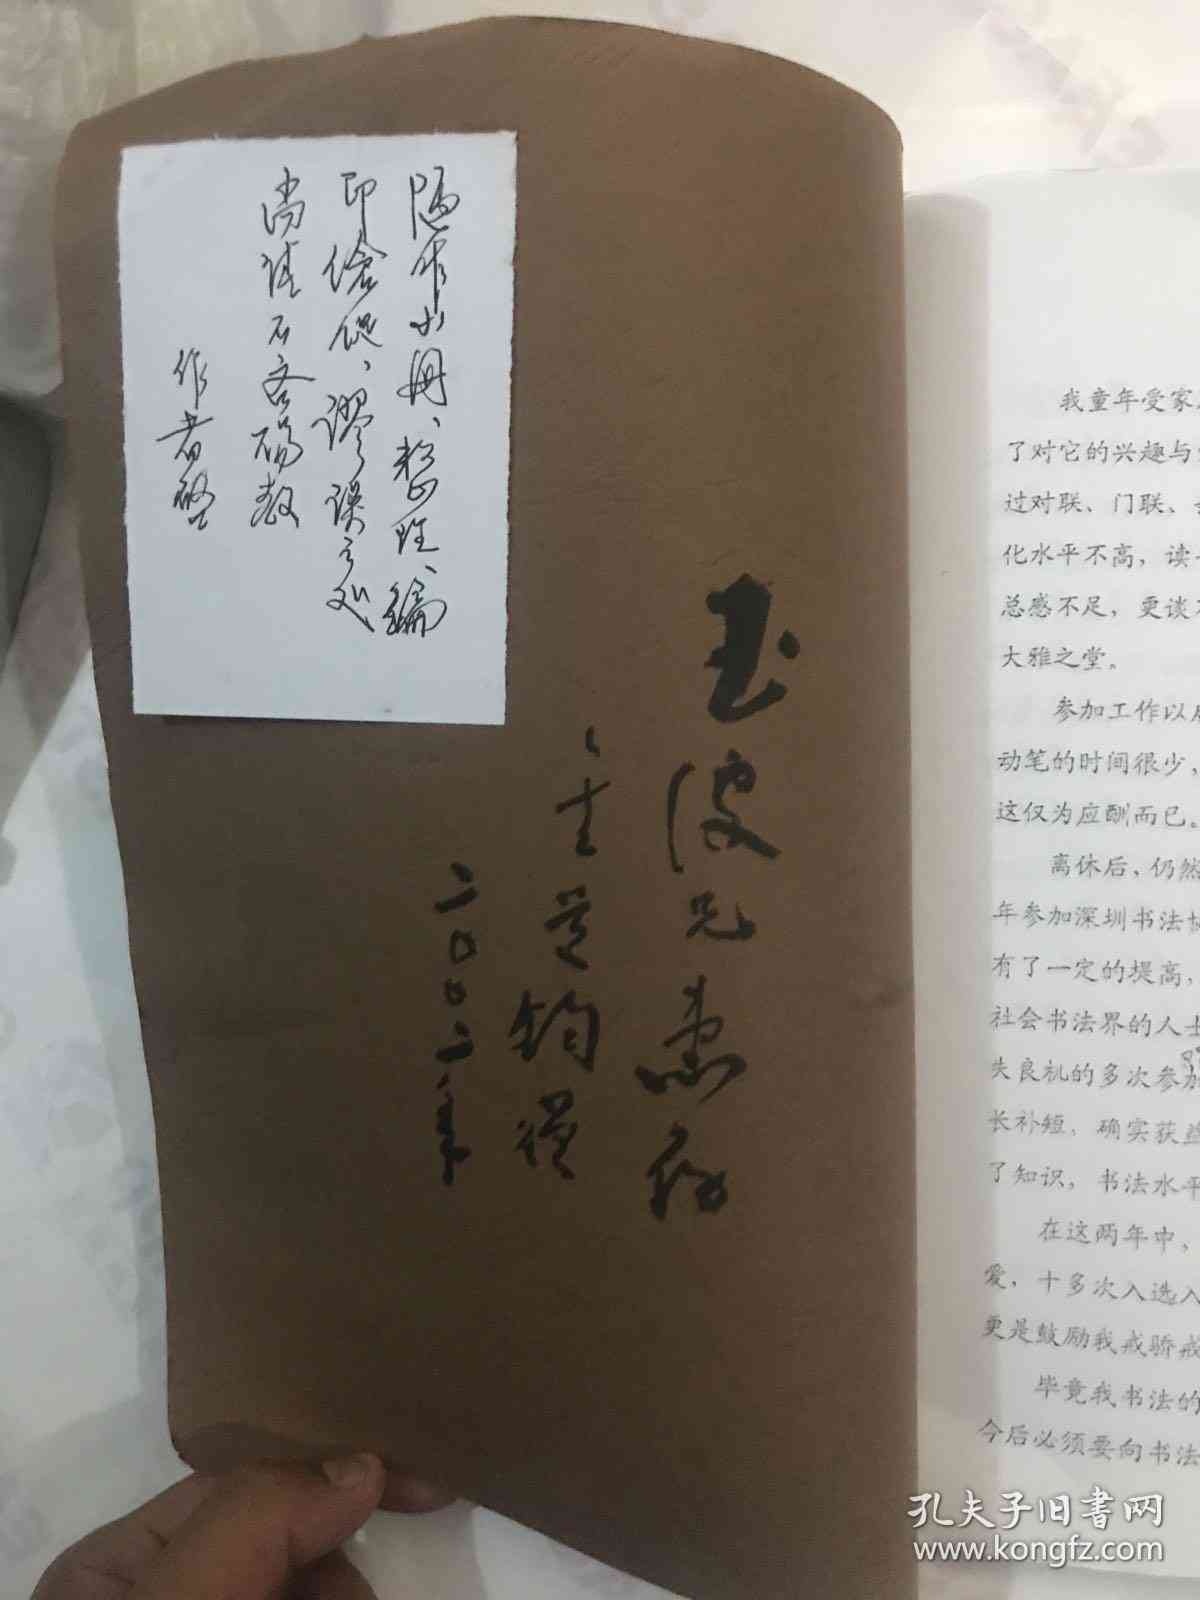 陋作小册、整理、编
印仓促、谬误之处
尚请不吝赐教
作者启
玉波兄惠存
二〇〇二年
我童年受家
了对它的兴趣与
过对联、门联、
化水平不高，读
总感不足，更谈
大雅之堂。
参加工作以
动笔的时间很少，
这仅为应酬而已。
离休后，仍然
年参加深圳书法
有了一定的堤高，
社会书法界的人士
失良礼的多次参加
长补短，确实获益
了知识，书法水平
在这两年中，
爱，十多次入选入
更是鼓励我戒骄戒
毕竟我书法的
今后必须要向书法
孔夫子旧书网
www.kongfz.com